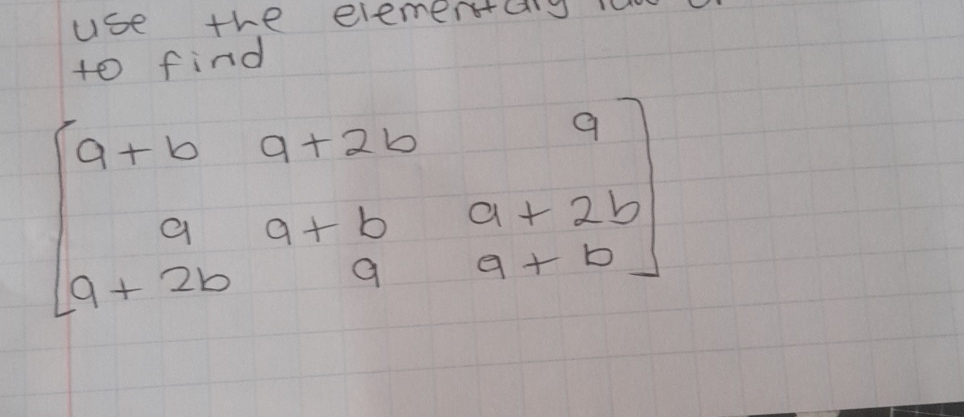 use the elementary
to find
a + b a + 2b a
a a + b a + 2b
a + 2b a a + b